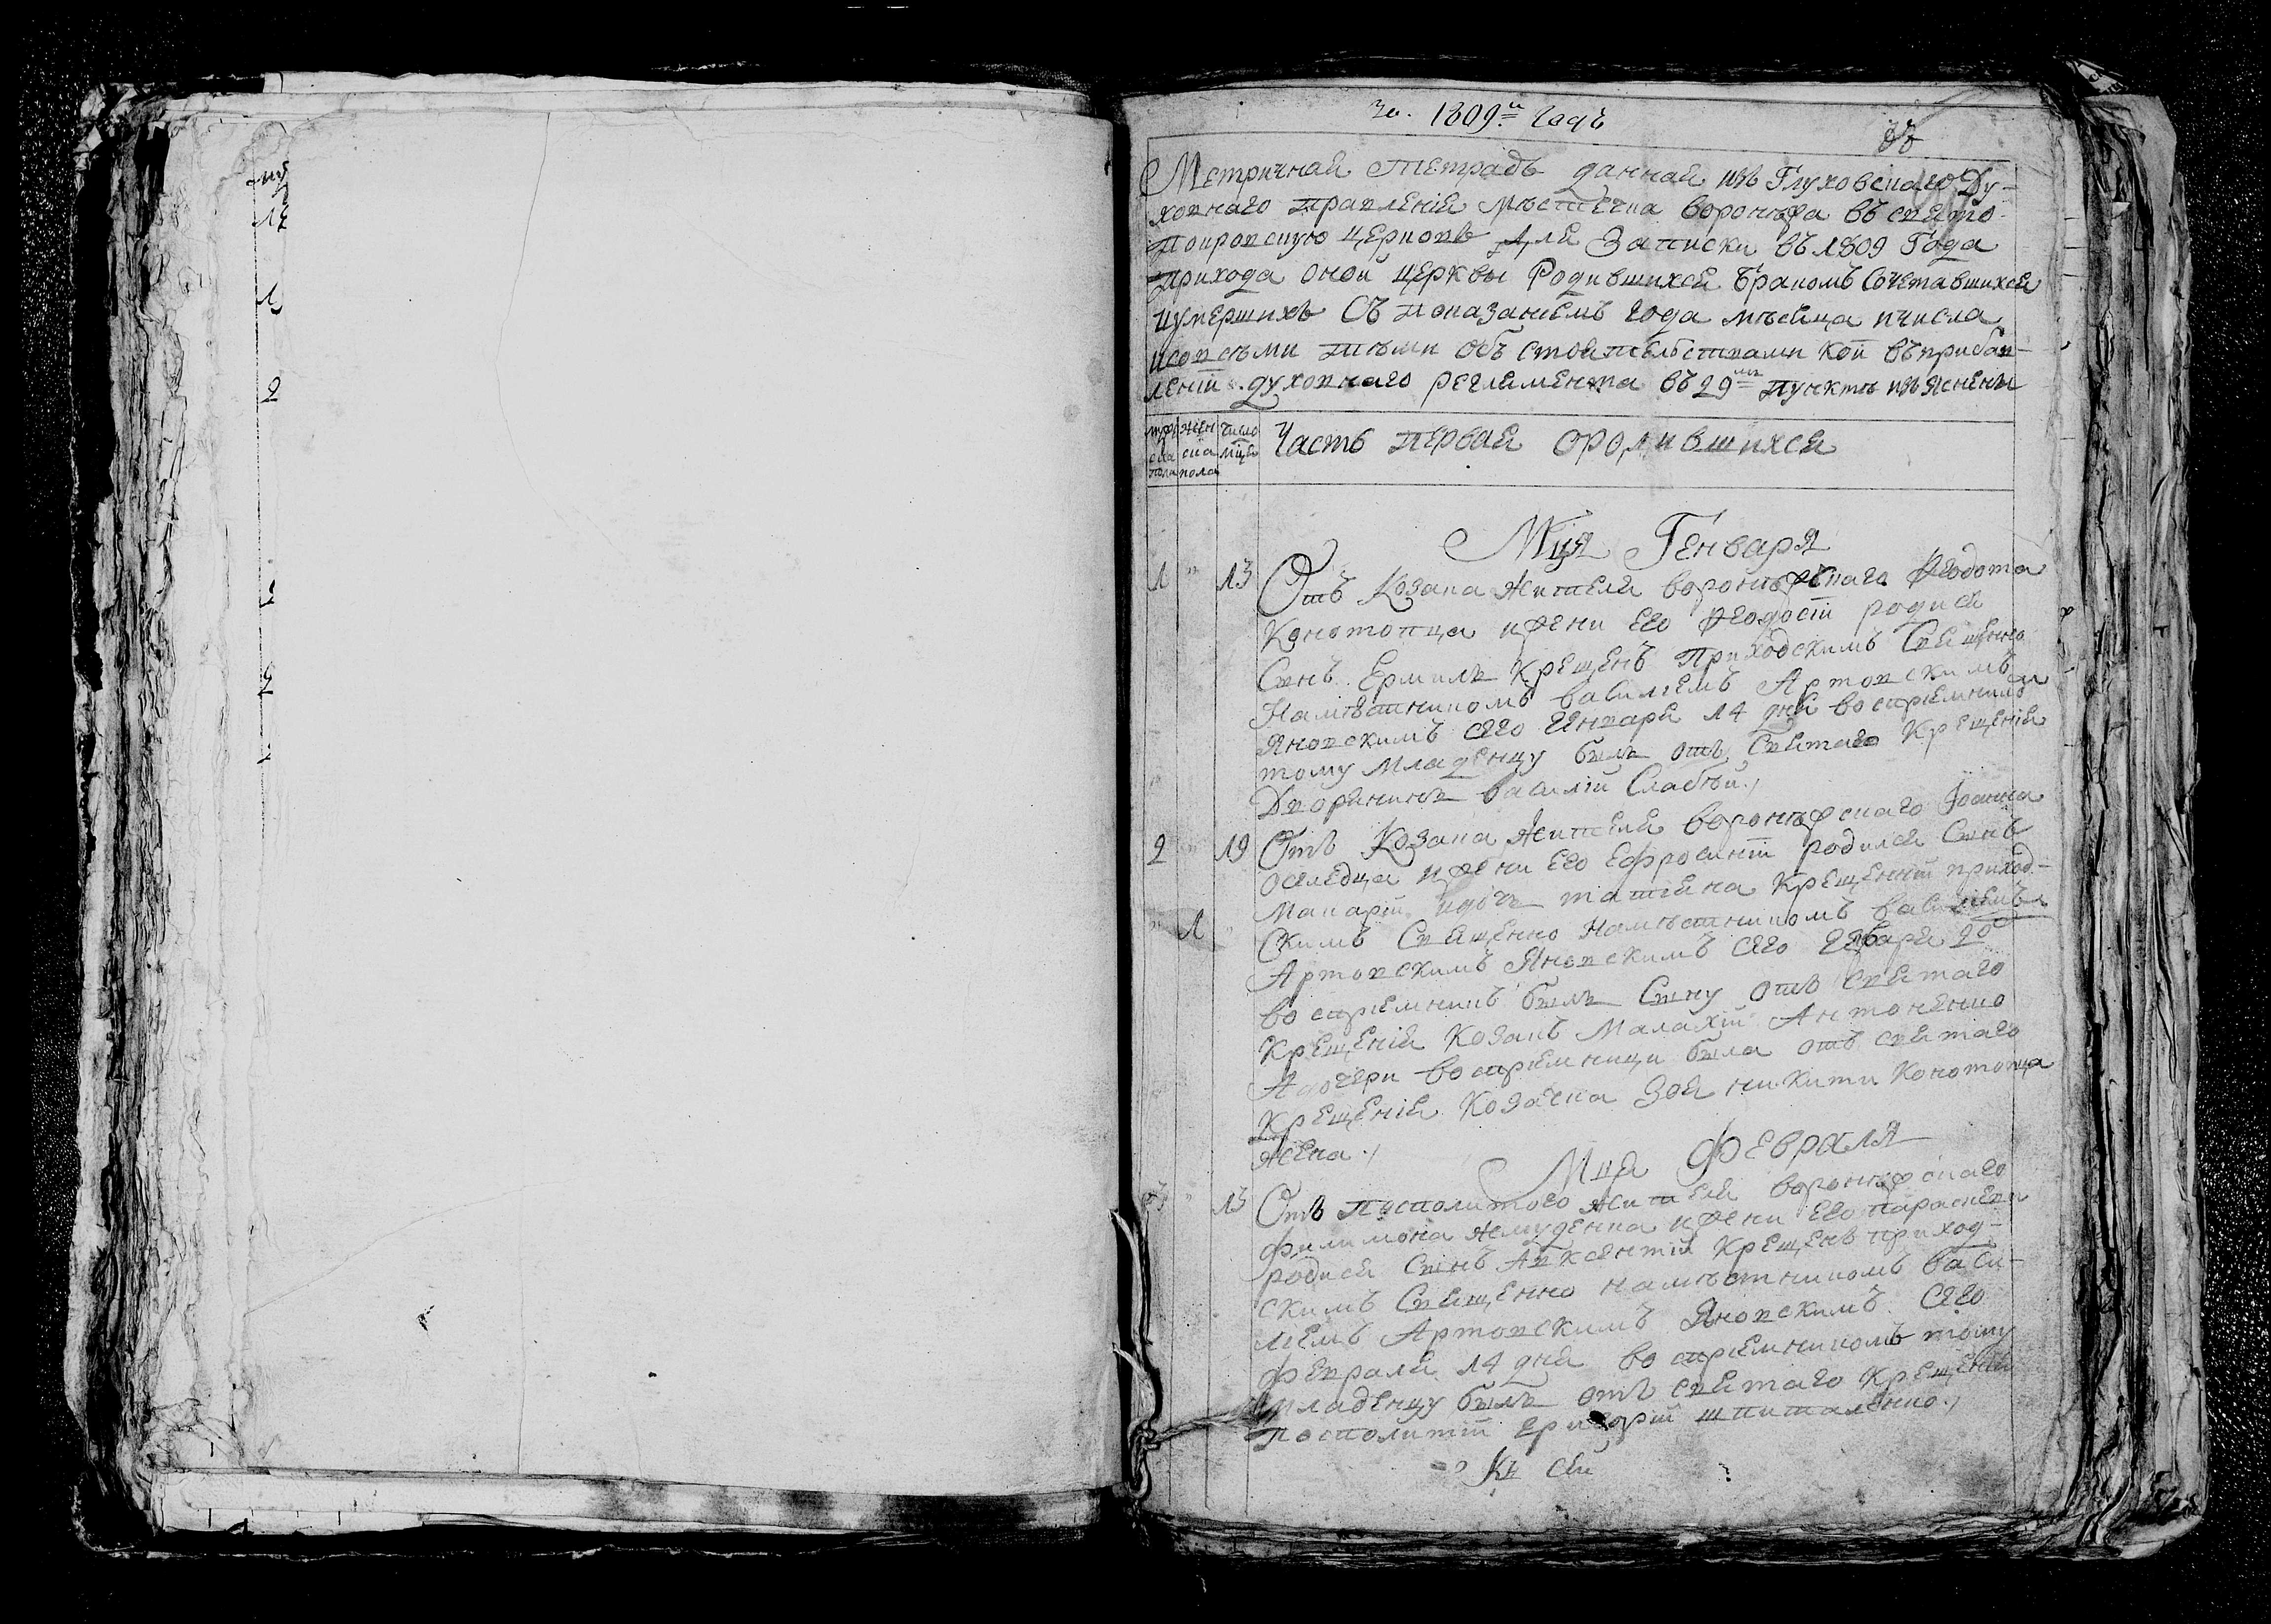 За 1809й годъ
Метричная тетрадь данная изъ Глуховскаго Ду-
ховнаго правленія мѣстечка Воронѣжа въ свято-
покровскую церковь для записки въ 1809 Года
прихода оной церквы Родившихся Бракомъ Сочетавшихся
иумершихъ Съ показаніемъ года мѣсяца ичисла
исовсѣми тѣми обстоятельствами кои въприбав-
леніи духовнаго регламента въ 29мъ пунктѣ изъяснены
муж жен число
ска ска мца
пола пола
Часть первая ородившихся
Мця Генваря
1 " 13 Отъ Козака жителя воронѣжскаго Феодота
Конотопца ижени его Феодосіи родися
Сынъ Ермилъ Крещенъ Приходскимъ Священно
Намѣстникомъ василіемъ Артовскимъ
Яновскимъ сего Генваря 14 дня воспріемникомъ
тому младенцу былъ отъ Святаго Крещенія
Дворянинъ василій Слабѣй
2 " 19 Отъ Козака Жителя воронѣжскаго Іоанна
Оселедца ижени его Ефросиніи родился Сынъ
Макарій идочь татіяна Крещенни приход-
" 1 "
Скимъ Священно Намѣстникомъ василіемъ
Артовскимъ Яновскимъ сего Генваря 20
воспріемникъ былъ Сыну отъ Святаго
Крещенія Козакъ Малахій Антоненко
Адочери воспріемници была отъ святаго
Крещенія Козачка Зоя никити Конотопца
жена
Мця Февраля
3 " 13 Отъ посполитого жителя воронѣжскаго
Филимона Жмуденка ижени его параскеви
родися Сынъ Авксентій Крещенъ приход-
скимъ Священно намѣстникомъ васи-
ліемъ Артовскимъ Яновскимъ сего
февраля 14 дня воспріемникомъ тому
младенцу былъ отъ святаго Крещенія
посполитій григорій шпиталенко
2
1
2